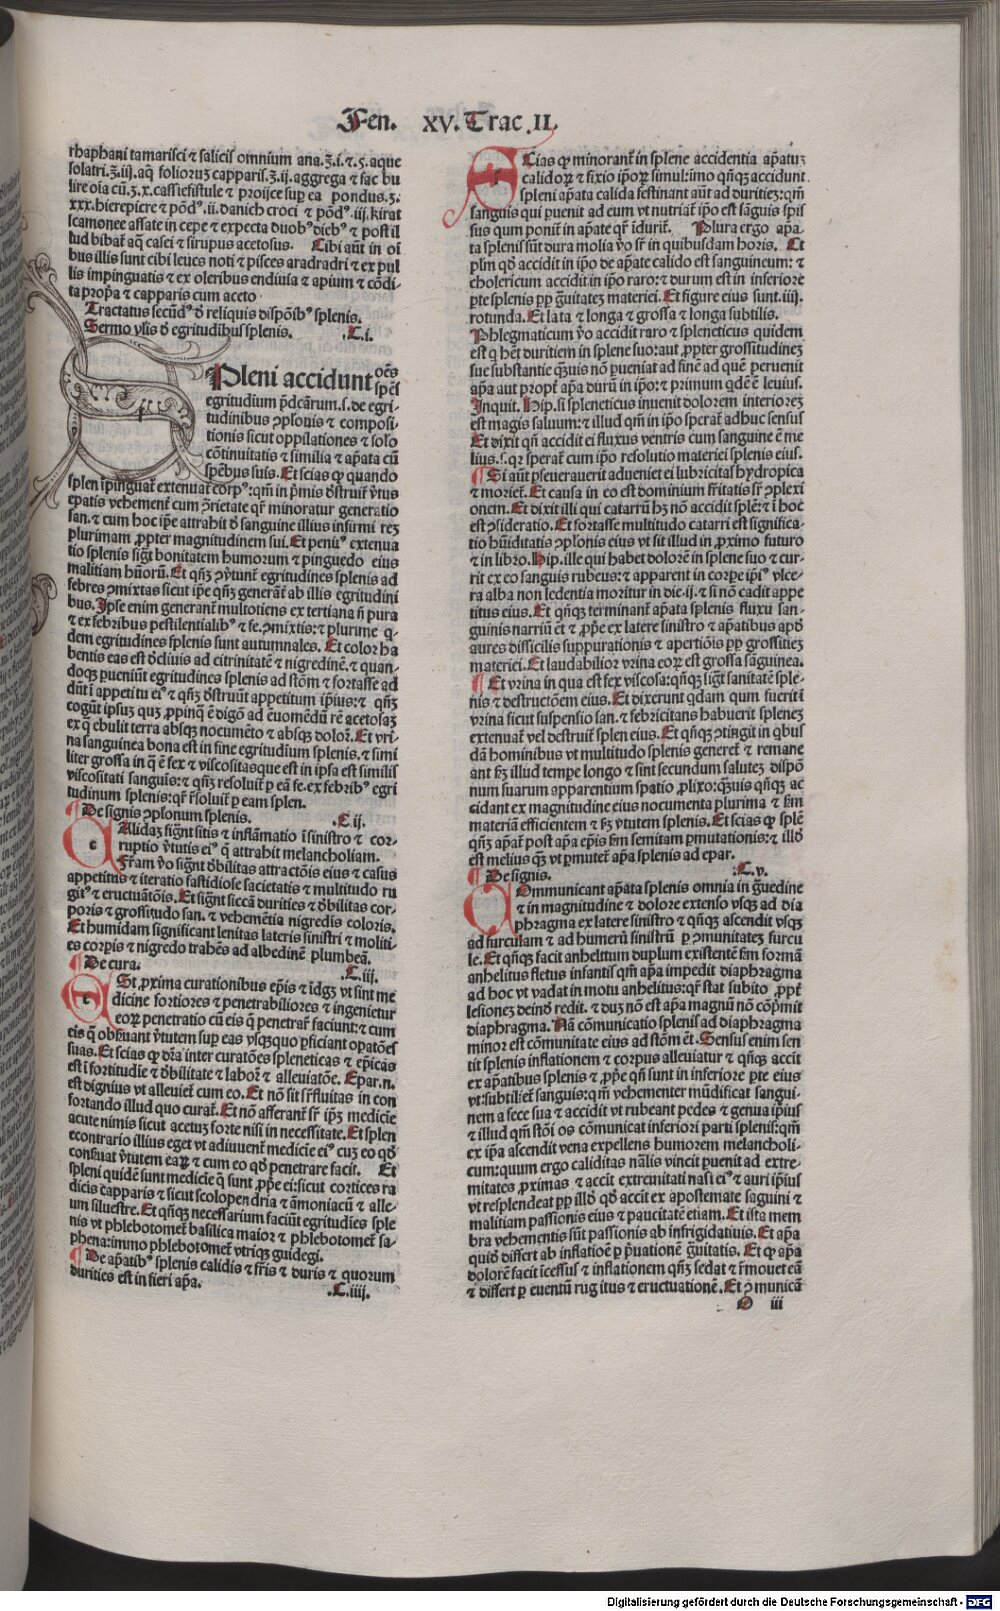 Fen. XV. Trac. II.
rhaphani tamarisci ⁊ salicis omnium ana.ʒ.i.⁊.s. aque
solatri.ʒ.iij. aq̃ folioruʒ capparis.ʒ.ij. aggrega ⁊ fac bu
lire oia cũ.ʒ.x. cassiefistule ⁊ proijce sup̱ ea pondus.ʒ.
xxx. hierepicre ⁊ põdꝰ.ii. danich croci ⁊ põdꝰ.iij. kirat
scamonee assate in cepe ⁊ expecta duobꝰ diebꝰ ⁊ post il
lud bibat̃ aq̃ casei ⁊ sirupus acetosus. Cibi aũt in oĩ
bus illis sunt cibi leues noti ⁊ pisces aradradri ⁊ ex pul
lis impinguatis ⁊ ex oleribus endiuia ⁊ apium ⁊ cõdi-
ta prop̃a ⁊ capparis cum aceto.
Tractatus secũdꝰ ð reliquis dispõibꝰ splenis.
Sermo vl̃is ð egritudĩbus splenis. .C.i.
SPleni accidunt oẽs
spẽs
egritudium p̃dcãrum.s. de egri-
tudinibus ↄplonis ⁊ composi-
tionis sicut oppilationes ⁊ solo
cõtinuitatis ⁊ similia ⁊ apãta cũ
spẽbus suis. Et scias ꝙ quando
splen ĩpinguat̃ extenuat̃ corpꝰ: qm̃ in p̃mis ðstruit ṽtus
epatis vehement̃ cum ↄ̃rietate qr̃ minoratur generatio
san. ⁊ cum hoc ip̃e attrahit ð sanguine illius infirmi reʒ
plurimam ꝓpter magnitudinem sui. Et penitꝰ extenua
tio splenis sigt̃ bonitatem humorum ⁊ pinguedo eius
malitiam hũorũ. Et qñʒ ↄṽtunt̃ egritudines splenis ad
febres ↄmixtas sicut ip̃e qñʒ generãt̃ ab illis egritudini
bus. Ipse enim generant̃ multotiens ex tertiana ñ pura
⁊ ex febribus pestilentialibꝰ ⁊ fe. ↄmixtis: ⁊ plurime q-
dem egritudines splenis sunt autumnales. Et color ha
bentis eas est ðcliuis ad citrinitatẽ ⁊ nigredinẽ. ⁊ quan-
doqʒ pueniũt egritudines splenis ad stõm ⁊ fortasse ad
dũt ĩ appetitu eiꝰ ⁊ qñʒ ðstruũt appetitum ip̃ius: ⁊ qñʒ
cogũt ipsuʒ quʒ ꝓpinq̃ ẽ digõ ad euomẽdũ rẽ acetosaʒ
ex q̃ ebulit terra absqʒ nocumẽto ⁊ absqʒ dolor̃. Et vri-
na sanguinea bona est in fine egritudium splenis. ⁊ simi
liter grossa in q̃ ẽ fex ⁊ viscositasque est in ipsa est similis
viscositati sanguis: ⁊ qñʒ resoluit̃ p̱ eã fe. ex febribꝰ egri
tudinum splenis: qr̃ r̃soluit̃ p̱ eam splen.
De signis ↄplonum splenis. .C.ij.
CAlidaʒ sigñt sitis ⁊ inflãmatio ĩ sinistro ⁊ cor-
ruptio ṽtutis eiꝰ q̃ attrahit melancholiam.
Fr̃am ṽo sigñt ðbilitas attractõis eius ⁊ casus
appetitus ⁊ iteratio fastidiose sacietatis ⁊ multitudo ru
gitꝰ ⁊ eructuãtõis. Et sigñt siccã durities ⁊ ðbilitas cor-
poris ⁊ grossitudo san. ⁊ vehemẽtia nigredis coloris.
Et humidam significant lenitas lateris sinistri ⁊ moliti-
es corp̱is ⁊ nigredo trahẽs ad albedinẽ plumbeã.
De cura. .C.iii.
ESt ꝓxima curationibus ep̃is ⁊ ĩdgʒ vt sint me
dicine fortiores ⁊ penetrabiliores ⁊ ingenietur
eoꝝ penetratio cũ eis q̃ penetrar̃ faciunt: ⁊ cum
tis q̃ obs̃uant ṽtutem sup̱ eas vsqʒquo p̱ficiant opatõeš
suas. Et scias ꝙ dr̃a inter curatões spleneticas ⁊ ep̃icas
est ĩ fortitudie ⁊ ðbilitate ⁊ labor̃ ⁊ alleuiatõe. Epar.n.
est dignius vt alleuiet̃ cum eo. Et nõ sit sr̃fluitas in con
fortando illud quo curat̃. Et nõ afferant̃ sr̃ ip̃ʒ medicie
acute nimis sicut acetuʒ forte nisi in necessitate. Et splen
econtrario illius eget vt adiuuent̃ medicie eiꝰ cuʒ eo qð
cons̃uat ṽtutem eaꝝ ⁊ cum eo qð penetrare facit. Et
spleni quidẽ sunt medicie q̃ sunt ꝓp̃e ei: sicut cortices ra
dicis capparis ⁊ sicut scolopendria ⁊ ãmoniacũ ⁊ alle-
um siluestre. Et qñqʒ necessarium faciũt egritudies sple
nis vt phlebotomet̃ basilica maior ⁊ phlebotomet̃ sa-
phena: immo phlebotomet̃ vtriqʒ guidegi.
De ap̃atibꝰ splenis calidis ⁊ fr̃is ⁊ duris ⁊ quorum
durities est in fieri ap̃a. .C.iiij.
SCias ꝙ minorant̃ in splene accidentia ap̃atuʒ
calidoꝝ ⁊ fixio ip̃oꝝ simul: imo qñqʒ accidunt
spleni ap̃ata calida festinant aũt ad duritieʒ: qm̃
sanguis qui puenit ad eum vt nutriat̃ ip̃o est sãguis spis
sus qum ponit̃ in ap̃ate qr̃ ĩdurit̃. Plura ergo ap̃a
ta splenis sũt dura molia ṽo sr̃ in quibusdam horis. Et
plĩm qð accidit in ip̃o de ap̃ate calido est sanguineum: ⁊
cholericum accidit in ip̃o raro: ⁊ durum est in inferiore
p̱te splenis p̱p g̃uitateʒ materiei. Et figure eius sunt.iiij.
rotunda. Et lata ⁊ longa ⁊ grossa ⁊ longa subtilis.
Phlegmaticum ṽo accidit raro ⁊ spleneticus quidem
est q̃ hẽt duritiem in splene suo: aut ꝓpter grossitudineʒ
sue substantie qʒuis nõ pueniat ad finẽ ad quẽ peruenit
ap̃a aut propt̃ ap̃a durũ in ip̃o: ⁊ primum qdẽ ẽ leuius.
Inquit. Hip. si spleneticus inuenit dolorem interioreʒ
est magis saluum: ⁊ illud qm̃ in ip̃o sperat̃ adhuc sensus
Et dixit qñ accidit ei fluxus ventris cum sanguine ẽ me
lius.s. qꝛ sperat̃ cum ip̃o resolutio materiei splenis eius.
Si aũt p̱seuerauerit adueniet ei lubricitas hydropica
⁊ moriet̃. Et causa in eo est dominium fr̃itatis sr̃ ↄplexi
onem. Et dixit illi qui catarrũ hʒ nõ accidit splẽ: ⁊ ĩ hoc
est ↄsideratio. Et fortasse multitudo catarri est significa-
tio hũiditatis ↄplonis eius vt sit illud in ꝓximo futuro
⁊ in libro. Hip. ille qui habet dolorẽ in splene suo ⁊ cur-
rit ex eo sanguis rubeus: ⁊ apparent in corp̱e ip̃iꝰ vlce-
ra alba non ledentia moritur in die.ij. ⁊ si nõ cadit appe
titus eius. Et qñqʒ terminant̃ ap̃ata splenis fluxu san-
guinis narriũ et ⁊ ꝓp̃e ex latere sinistro ⁊ ap̃atibus apð
aures difficilis suppurationis ⁊ apertiõis p̱p grossitieʒ
materiei. Et laudabilior vrina eoꝝ est grossa sãguinea.
Et vrina in qua est fex viscosa: qñqʒ sigt̃ sanitatẽ sple-
nis ⁊ destructõem eius. Et dixerunt qdam qum fuerit ĩ
vrina sicut suspensio san. ⁊ febricitans habuerit spleneʒ
extenuat̃ vel destruit̃ splen eius. Et qñqʒ ↄtingit in qbus
dã hominibus vt multitudo splenis generet̃ ⁊ remane
ant fʒ illud tempe longo ⁊ sint secundum saluteʒ dispõ
num suarum apparentium spatio ꝓlixo: qʒuis qñqʒ ac
cidant ex magnitudine eius nocumenta plurima ⁊ fm̃
materiã efficientem ⁊ fʒ ṽtutem splenis. Et scias ꝙ splẽ
qñʒ apãt̃ post ap̃a ep̃is fm̃ semitam p̱mutationis: ⁊ illð
est melius qʒ vt p̱mutet̃ ap̃a splenis ad epar.
De signis. .C.v.
COmmunicant ap̃ata splenis omnia in g̃uedine
⁊ in magnitudine ⁊ dolore extenso vsqʒ ad dia
phragma ex latere sinistro ⁊ qñqʒ ascendit vsqʒ
ad furculam ⁊ ad humerũ sinistrũ p̱ ↄmunitateʒ furcu
le. Et qñqʒ facit anhelitum duplum existentẽ fm̃ formã
anhelitus fletus infantis qm̃ ap̃a impedit diaphragma
ad hoc vt vadat in motu anhelitus: qr̃ stat subito ꝓpt̃
lesioneʒ deinð redit. ⁊ duʒ nõ est ap̃a magnũ nõ cõp̱mit
diaphragma. Nã cõmunicatio splenis ad diaphragma
minor est cõmunitate eius ad stõm et̃. Sensus enim sen
tit splenis inflationem ⁊ corpus alleuiatur ⁊ qñqʒ accit
ex ap̃atibus splenis ⁊ ꝓp̃e qñ sunt in inferiore p̱te eius
vt: subtiliet̃ sanguis: qm̃ vehementer mũdificat sangui-
nem a fece sua ⁊ accidit vt rubeant pedes ⁊ genua ip̃ius
⁊ illud qm̃ stõi os cõmunicat inferiori parti splenis: qm̃
ex ip̃a ascendit vena expellens humorem melancholi-
cum: quum ergo caliditas nãlis vincit puenit ad extre-
mitates ꝓximas ⁊ accit extremitati nasi eiꝰ ⁊ auri ip̃ius
vt resplendeat p̱p illð qð accit ex apostemate saguini ⁊
malitiam passionis eius ⁊ paucitatẽ etiam. Et ista mem
bra vehementis sũt passionis ab infrigidatiuis. Et ap̃a
quið differt ab inflatiõe p̱ p̃uationẽ g̃uitatis. Et ꝙ ap̃a
dolorẽ facit ĩcessus ⁊ inflationem qñʒ sedat ⁊ r̃mouet eã
⁊ differt p̱ euentũ rugitus ⁊ eructuationẽ. Et ↄmunicã
O iii
Digitalisierung gefördert durch die Deutsche Forschungsgemeinschaft - DFG